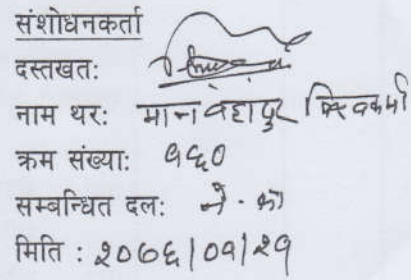 संशोधनकर्ता
दस्तखत:
नाम थर: मानबहादुर विश्वकर्मा
क्रम संख्या: १६०
सम्बन्धित दल: ने. का
मिति : २०७६|०१|२१